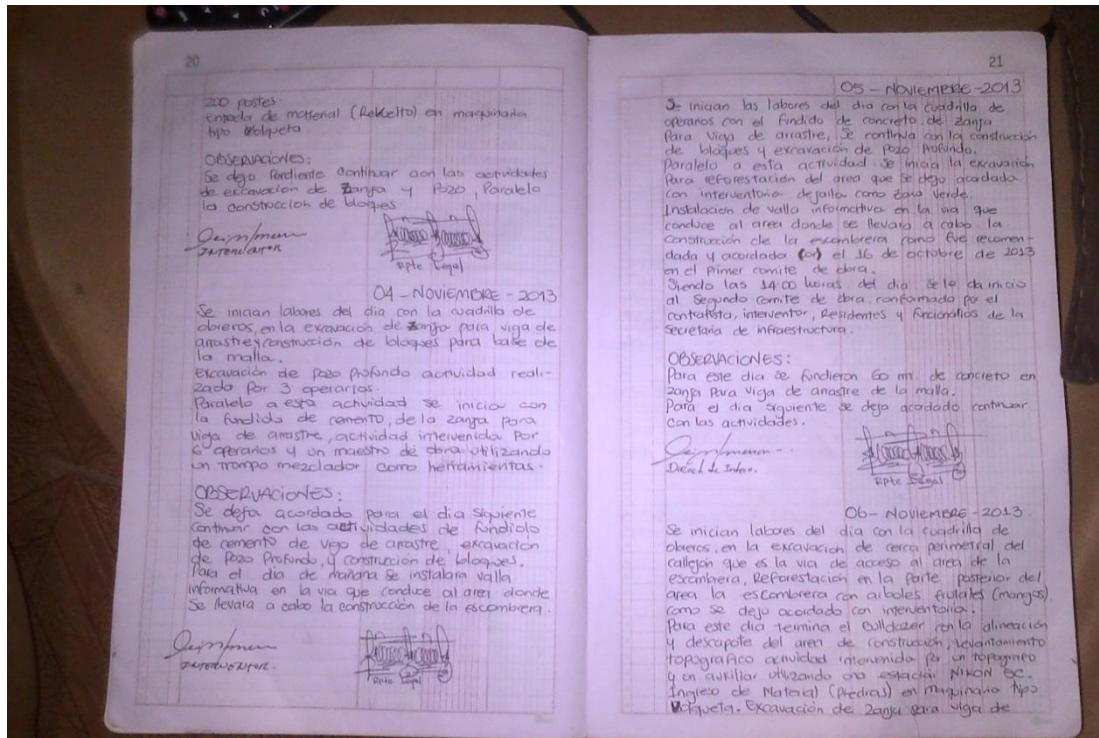 20
200 postes.
entrada de material (Rekelto) en maquinaria
tipo Volqueta
OBSERVACIONES:
Se dejo Pendiente continuar con las actividades
de excavacion de zanja y Pozo, Paralelo
la construccion de bloques
INTERVENTOR
Rpte Legal
04 - NOVIEMBRE - 2013
Se inician labores del dia con la cuadrilla de
obreros, en la excavación de zanja para viga de
arrastre y construcción de bloques para base de
la malla.
Excavación de Pozo Profundo actividad reali-
zado Por 3 operarios.
Paralelo a esta actividad se inicia con
la fundida de cemento, de la zanja para
viga de arrastre, actividad intervenida Por
6 operarios y un maestro de obra utilizando
un trompo mezclador como herramientas.
OBSERVACIONES:
Se deja acordado para el dia siguiente
Continuar con las actividades de fundido
de cemento de viga de arrastre, excavación
de Pozo Profundo, y construcción de bloques.
Para el dia de mañana se instalara valla
informativa en la via que conduce al area donde
Se llevara a cabo la construcción de la escombrera.
INTERVENTOR.
Rpte Legal
21
05 - NOVIEMBRE - 2013
Se inician las labores del dia con la cuadrilla de
operarios con el fundido de concreto de zanja
Para viga de arrastre, Se continua con la construcción
de bloques y excavación de Pozo Profundo.
Paralelo a esta actividad Se inicia la excavación
Para reforestación del area que se dejo acordada
con interventoria dejarla como zona verde.
Instalacion de valla informativa en la via que
conduce al area donde se llevara a cabo la
construcción de la escombrera como fue recomen-
dada y acordada el 16 de octubre de 2013
en el Primer comite de obra.
Siendo las 14:00 horas del dia se le da inicio
al Segundo comite de obra conformado por el
contratista, interventor, Residentes y funcionarios de la
secretaria de infraestructura.
OBSERVACIONES:
Para este dia se fundieron 60 ml. de concreto en
zanja Para viga de arrastre de la malla.
Para el dia siguiente se dejo acordado continuar
con las actividades.
Rpte Legal
06 - NOVIEMBRE - 2013.
Se inician labores del dia con la cuadrilla de
obreros, en la excavacion de cerca perimetral del
callejon que es la via de acceso al area de la
escombrera, Reforestación en la Parte posterior del
area la escombrera con arboles frutales (mangos)
como se dejo acordado con interventoria.
Para este dia termina el Bulldozer con la alineación
y descapote del area de construcción, levantamiento
topografico actividad intervenida por un topografo
y un auxiliar utilizando una estación NIKON
Ingreso de Material (Piedras) en maquinaria tipo
Volqueta. Excavación de zanja para viga de